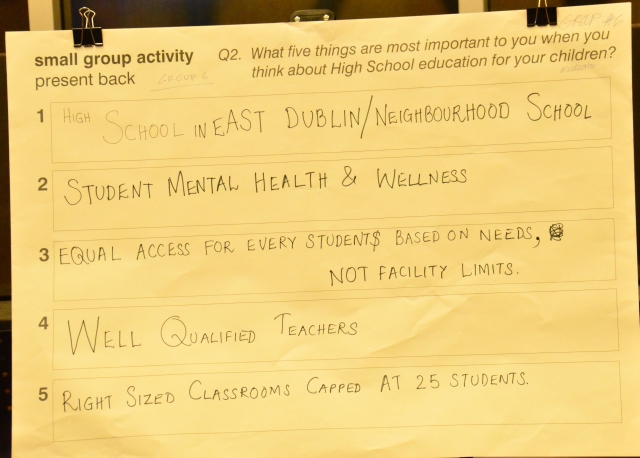 small group activity
present back
GROUP 6
GROUP #6
Q2. What five things are most important to you when you
think about High School education for your children?
1 HIGH SCHOOL IN EAST DUBLIN/NEIGHBOURHOOD SCHOOL
2 STUDENT MENTAL HEALTH & WELLNESS
3 EQUAL ACCESS FOR EVERY STUDENTS BASED ON NEEDS,
NOT FACILITY LIMITS.
4 WELL QUALIFIED TEACHERS
5 RIGHT SIZED CLASSROOMS CAPPED AT 25 STUDENTS.